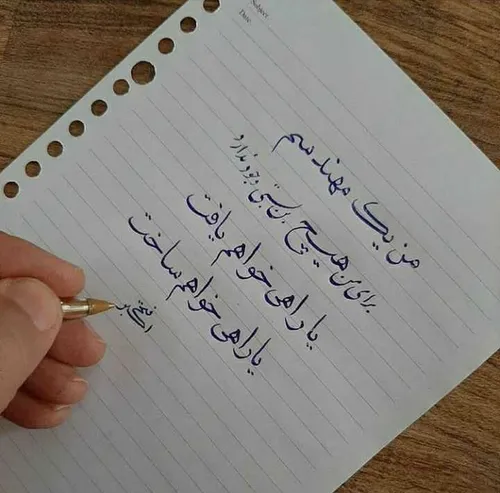 Subject
Date
من یک مهندسم
برای من هیچ بن بستی وجود ندارد
یا راهی خواهم یافت
یا راهی خواهم ساخت